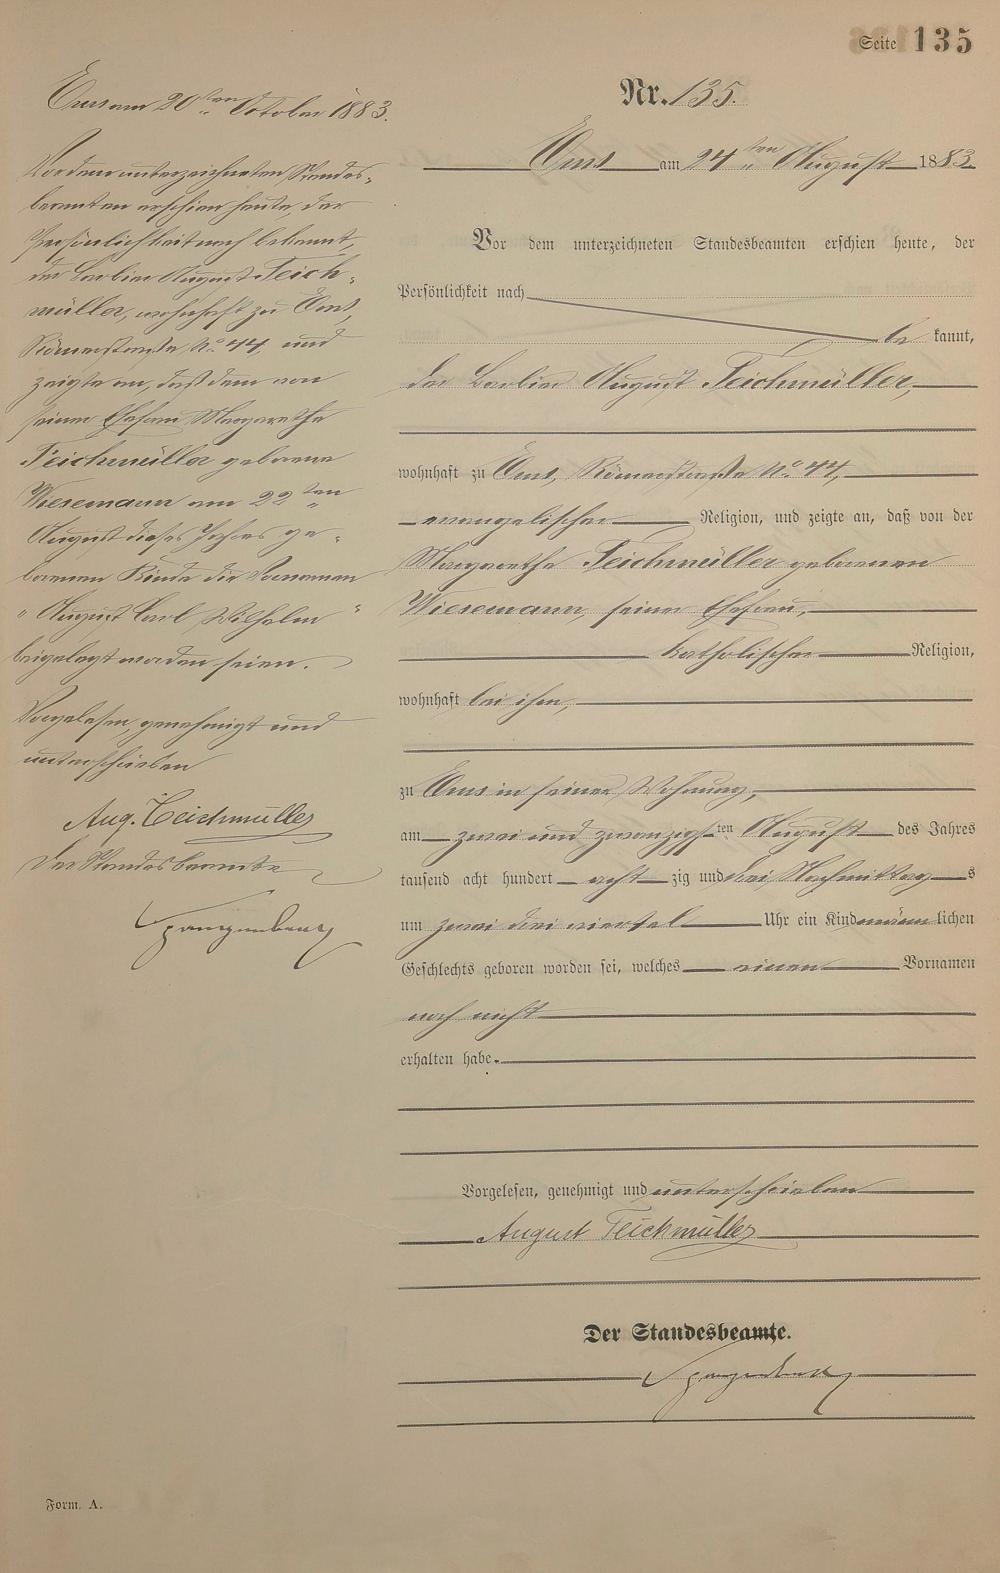 Seite 135
Nr. 135.
Ems am 24ten August 1883.
Vor dem unterzeichneten Standesbeamten erschien heute, der
Persönlichkeit nach
be kannt,
der Barbier August Teichmüller,
wohnhaft zu Ems, Römerstraße No. 44,
evangelischer Religion, und zeigte an, daß von der
Margarethe Teichmüller geborenen
Wiesemann, seiner Ehefrau,
katholischer Religion,
wohnhaft bei ihm,
zu Ems in seiner Wohnung,
am zwei und zwanzigsten August des Jahres
tausend acht hundert acht zig und drei Nachmittags
um zwei drei viertel Uhr ein Kind männlichen
Geschlechts geboren worden sei, welches einen Vornamen
noch nicht
erhalten habe.
Vorgelesen, genehmigt und unterschrieben
August Teichmüller
Der Standesbeamte.
Ems am 20ten October 1883.
Vor dem unterzeichneten Standes-
beamten erschien heute, der
Persönlichkeit nach bekannt,
der Barbier August Teich-
müller, wohnhaft zu Ems,
Römerstraße No. 44, und
zeigte an, daß dem von
seiner Ehefrau Margarethe
Teichmüller geborene
Wiesemann am 22ten
August dieses Jahres ge-
borenen Kinde die Vornamen
"August Carl Wilhelm"
beigelegt worden seien.
Vorgelesen, genehmigt und
unterschrieben
Aug. Teichmüller
Der Standesbeamte
Form. A.